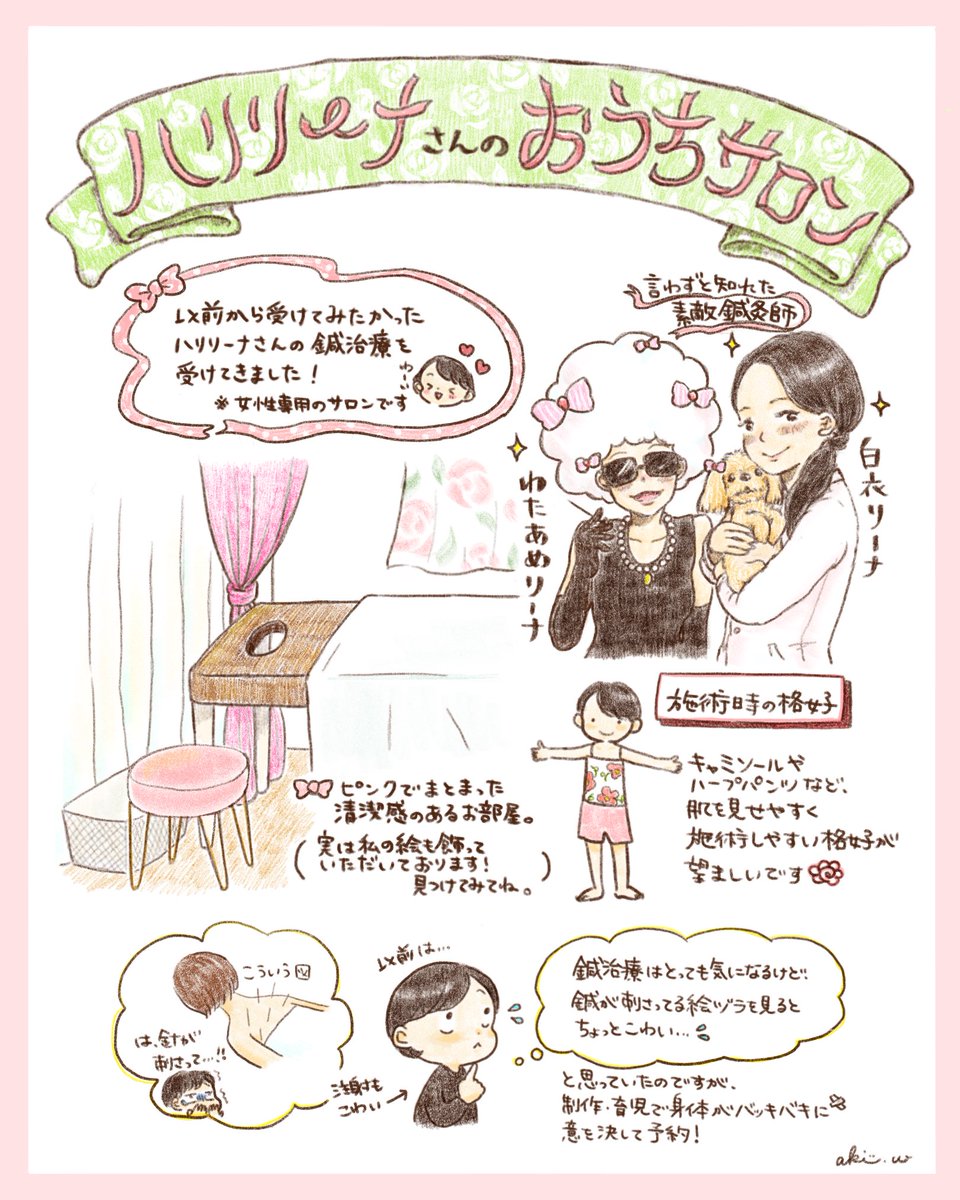 ハリリーナさんのおうちサロン
以前から受けてみたかった
ハリリーナさんの鍼治療を
受けてきました！
わーい
※女性専用のサロンです
言わずと知れた
素敵鍼灸師
わたあめリーナ
白衣リーナ
ピンクでまとまった
清潔感のあるお部屋。
(実は私の絵も飾って
いただいております！
見つけてみてね。)
施術時の格好
キャミソールや
ハーフパンツなど、
肌を見せやすく
施術しやすい格好が
望ましいです
こういう図
は、針が
刺さって…!!
以前は…
注射も
こわい
鍼治療はとっても気になるけど…
鍼が刺さってる絵ヅラを見ると
ちょっとこわい…
と思っていたのですが、
制作・育児で身体がバッキバキに
意を決して予約！
aki.w